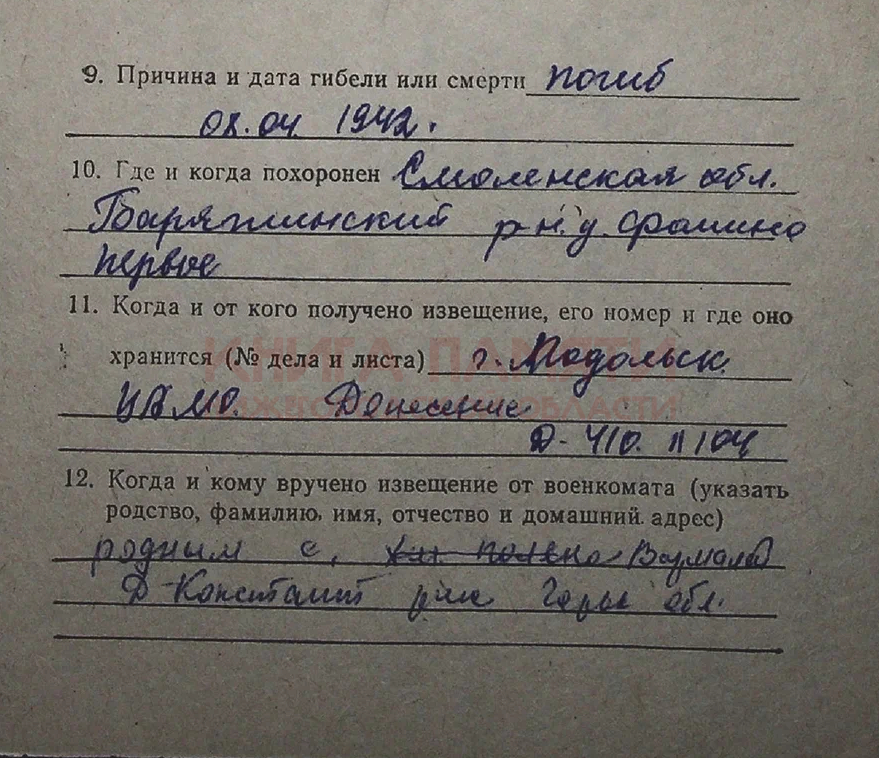 9. Причина и дата гибели или смерти погиб
08.04 1942.
10. Где и когда похоронен Смоленская обл.
Барятинский р-н. у. Фомино
первое
11. Когда и от кого получено извещение, его номер и где оно
КНИГА ПАМЯТИ
хранится (№ дела и листа) г. Подольск.
ЦАМО. Донесение
НИЖЕГОРОДСКОЙ ОБЛАСТИ
Д-410. л 104
12. Когда и кому вручено извещение от военкомата (указать
родство, фамилию, имя, отчество и домашний адрес)
родным с,
Д-Констант р-на Горьк обл.